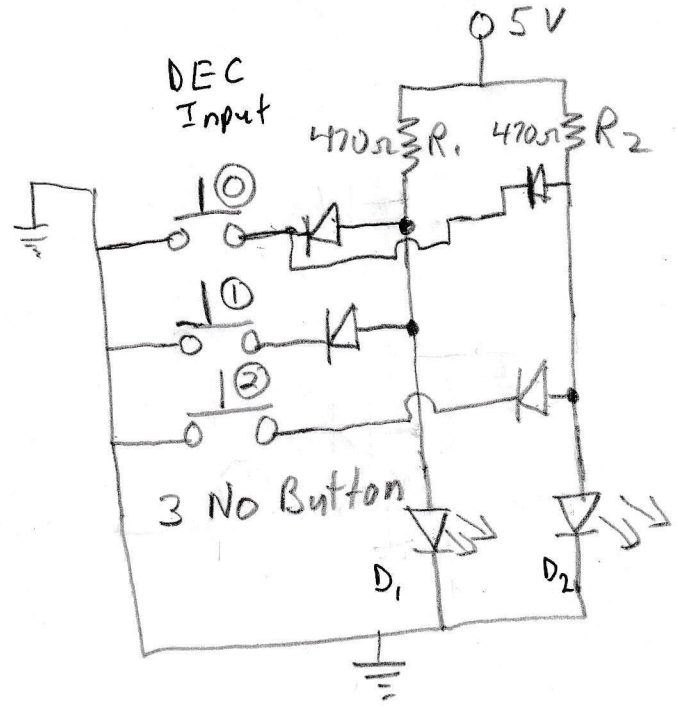 5 V
DEC
Input
470Ω R1
470Ω R2
0
1
2
3 No Button
D1
D2